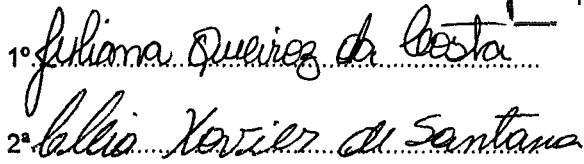 1º Juliana Queiroz da Costa
2ª Clélia Xavier de Santana